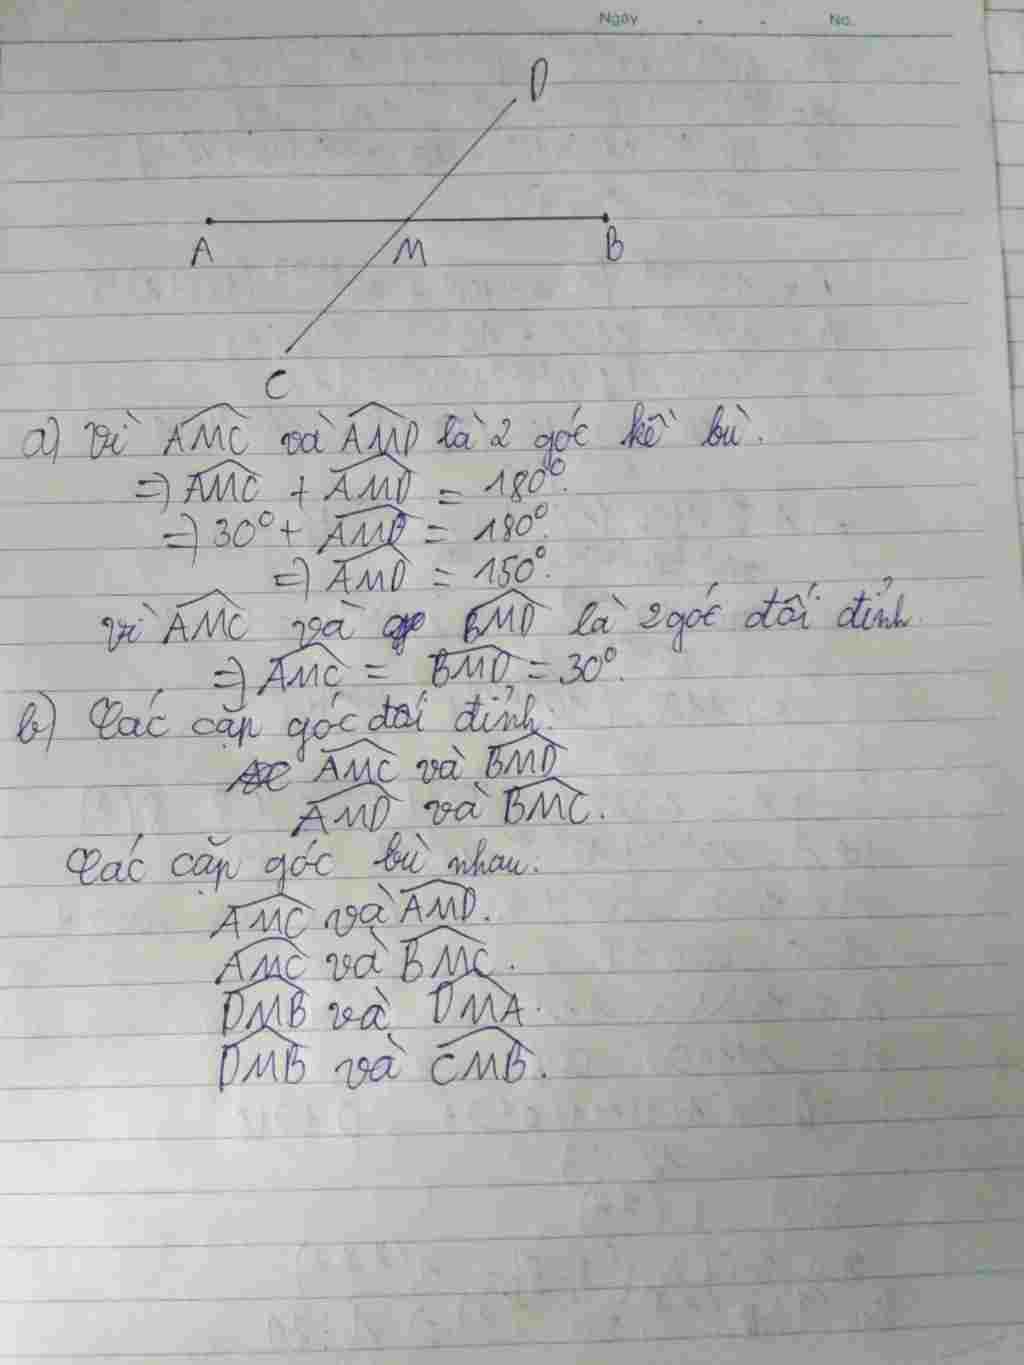 Ngày . . No.
D
A M B
C
a) Vì AMC và AMD là 2 góc kề bù.
=) AMC + AMD = 180°.
=) 30° + AMD = 180°.
=) AMD = 150°.
Vì AMC và BMD là 2 góc đối đỉnh.
=) AMC = BMD = 30°.
b) Các cặp góc đối đỉnh:
AMC và BMD
AMD và BMC.
Các cặp góc bù nhau.
AMC và AMD.
AMC và BMC.
DMB và DMA.
DMB và CMB.